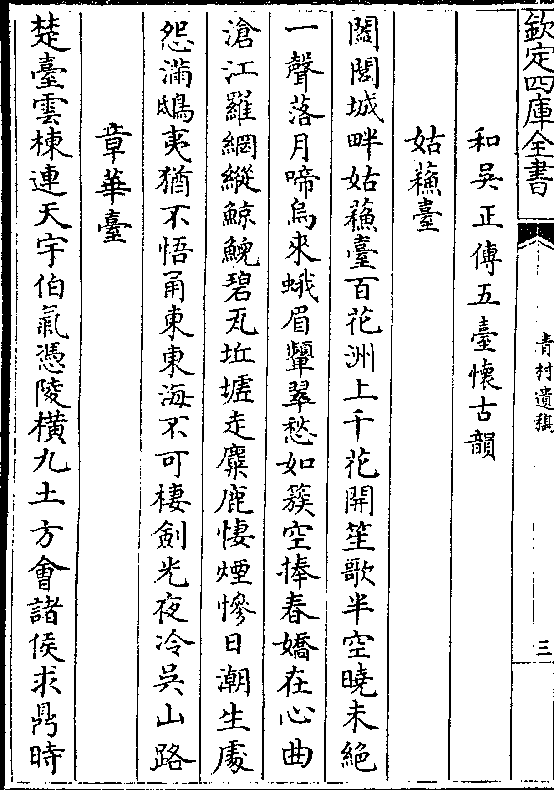 欽定四庫全書
青村遺稿
三
和吳正傳五臺懷古韻
姑蘓臺
闔閭城畔姑蘓臺百花洲上千花開笙歌半空曉未絶
一聲落月啼烏來蛾眉顰翠愁如簇空捧春嬌在心曲
滄江羅網縱鯨鯢碧瓦坵墟走麋鹿悽煙慘日潮生處
怨滿鴟夷猶不悟甬東東海不可棲劍光夜冷吳山路
章華臺
楚臺雲棟連天宇伯氣憑陵橫九土方會諸侯求鼎時